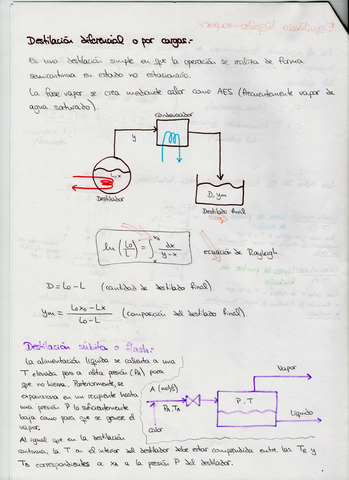 Destilación diferencial o por cargas.-
Es una destilación simple en que la operación se realiza de forma
semicontinua en estado no estacionario.
La fase vapor se crea mediante calor como AES (frecuentemente vapor de
agua saturado).
Condensador
y
L,x
Destilador
D, ym
Destilado final
ln (Lo/L) = ∫ x xo dx/(y-x)
ecuación de Rayleigh
D = Lo - L (cantidad de destilado final)
ym = (Lo xo - Lx)/(Lo - L) (composición del destilado final).
Destilación súbita o flash.-
La alimentación líquida se calienta a una
T elevada pero a alta presión (PA) para
que no hierva. Posteriormente, se
expansiona en un recipiente hasta
una presión P lo suficientemente
baja como para que se genere el
vapor.
Al igual que en la destilación
continua, la T en el interior del destilador debe estar comprendida entre las TR y
TB correspondientes a xA a la presión P del destilador.
A (mol/s)
PA, TA
calor
P, T
Vapor
Líquido